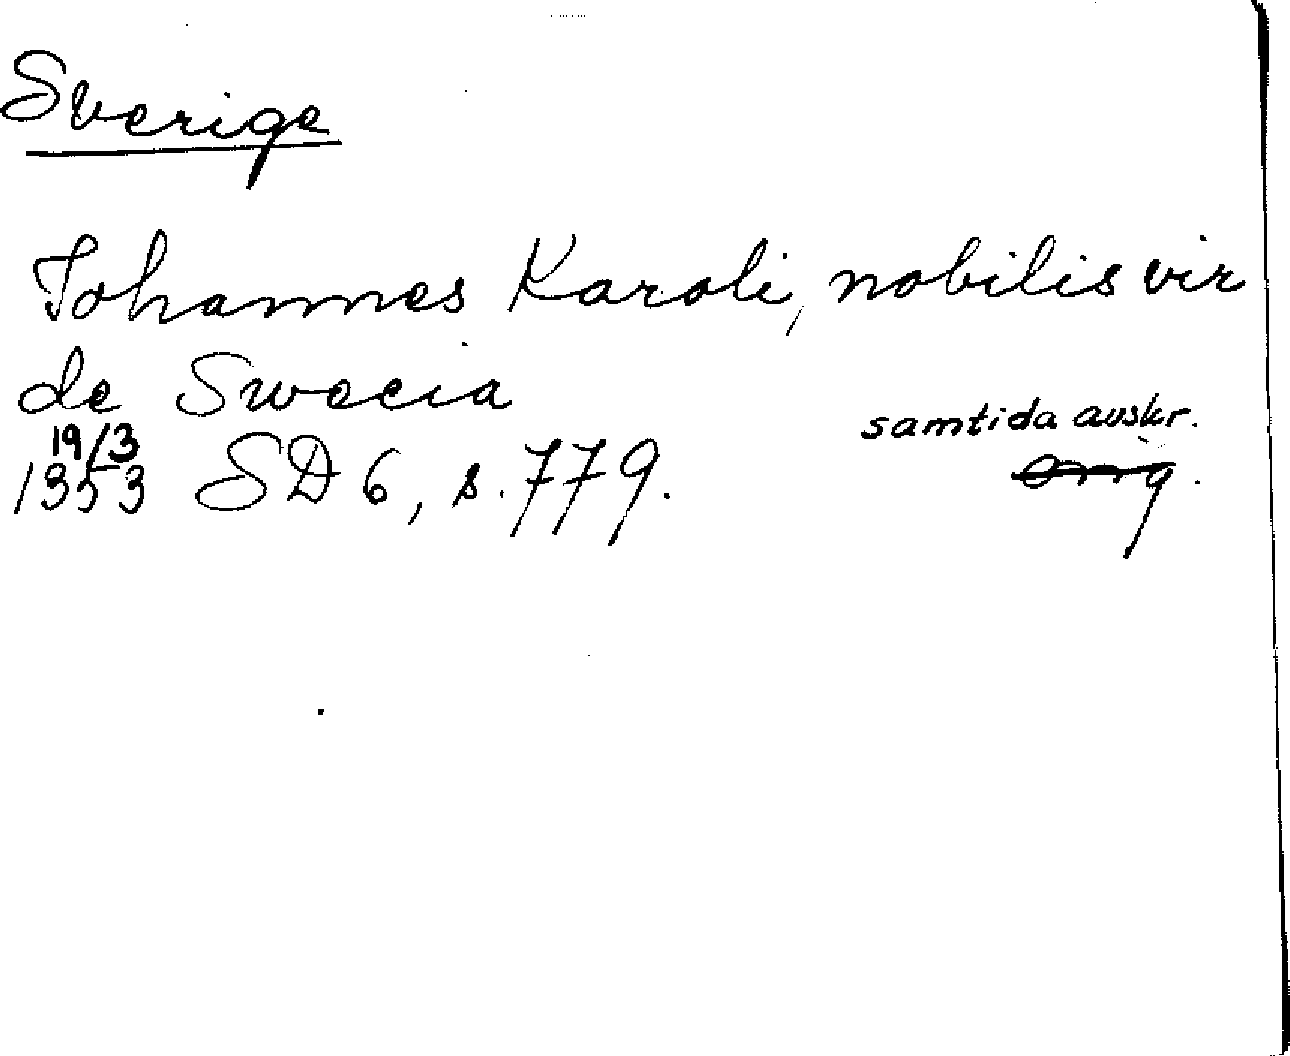 Sverige
Johannes Karoli, nobilis vir
de Swecia
19/3 samtida avskr.
1353 SD 6, s. 779. orig.